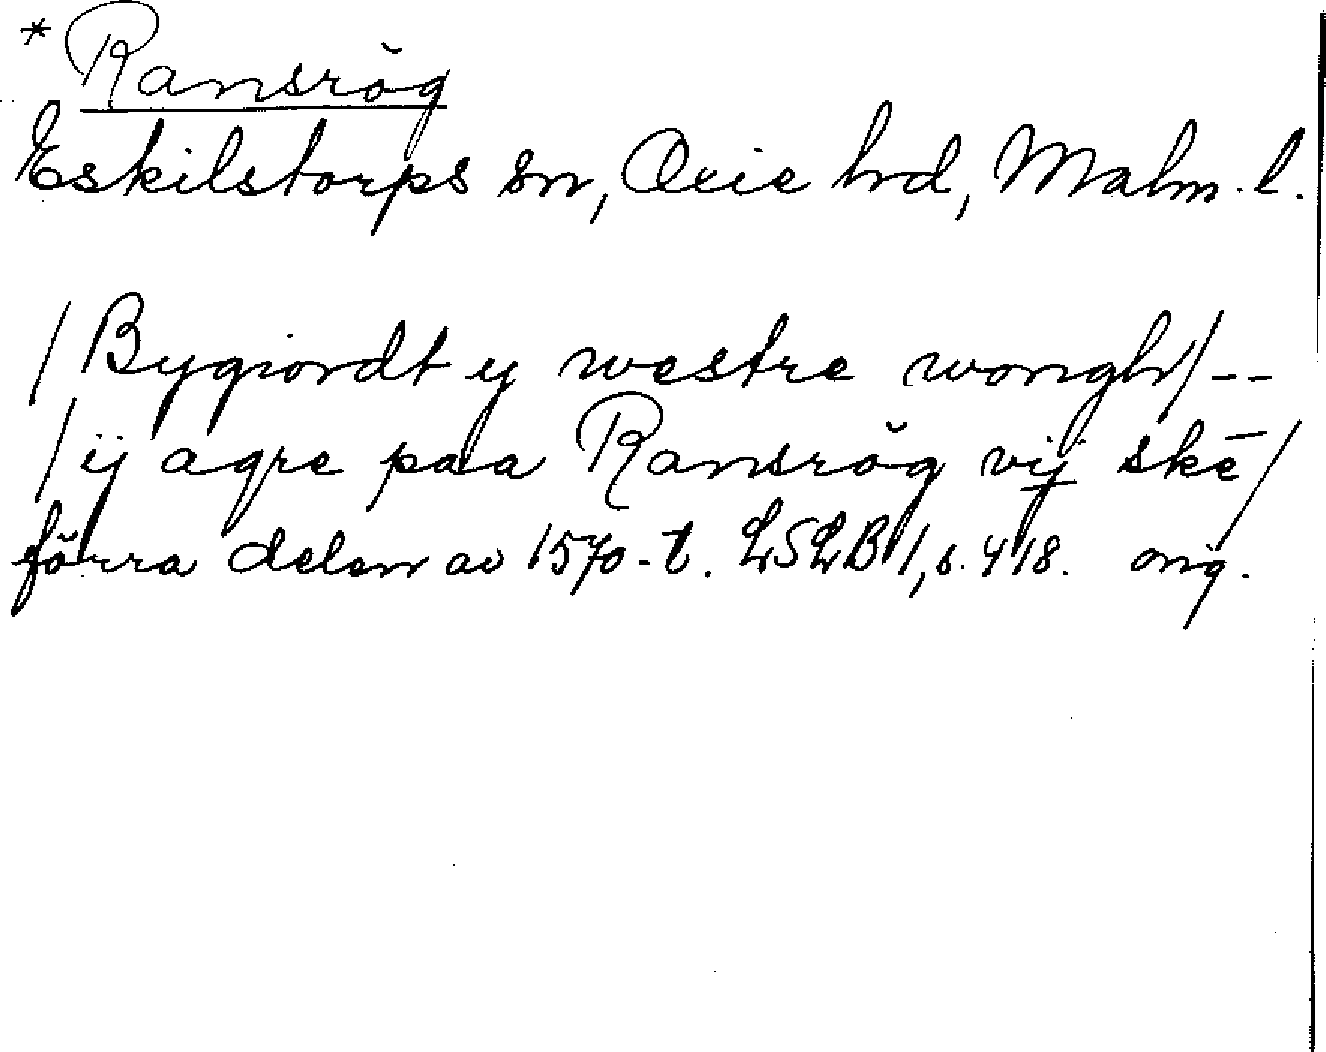 * Ransrög
Eskilstorps sn, Oxie hd, Malm. l.
/Bygiordt y westre wongh/--
/ij agre paa Ransrög vij skē/
förra delen av 1570-t. LSLB 1, s. 418. orig.